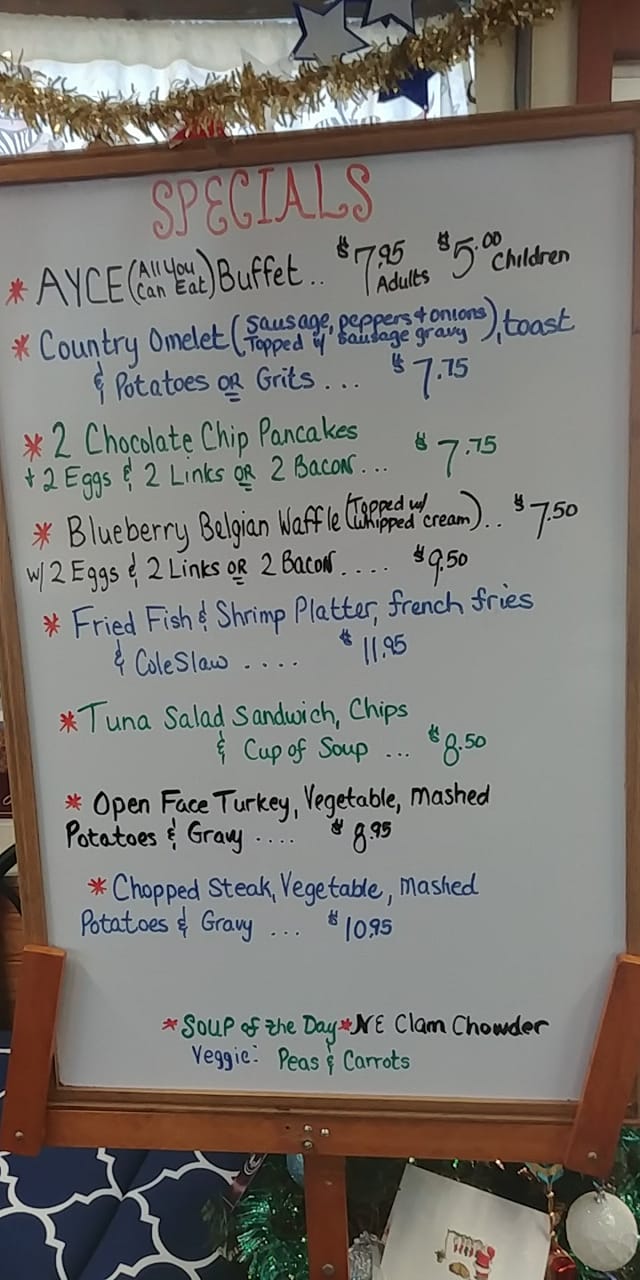 SPECIALS
* AYCE (All You Can Eat) Buffet.. $7.95 Adults $5.00 Children
* Country Omelet (Sausage, peppers + onions Topped w/ Sausage gravy), toast
& Potatoes OR Grits ... $7.75
* 2 Chocolate Chip Pancakes
+ 2 Eggs & 2 Links OR 2 Bacon... $7.75
* Blueberry Belgian Waffle (Topped w/ whipped cream).. $7.50
w/ 2 Eggs & 2 Links OR 2 Bacon.... $9.50
* Fried Fish & Shrimp Platter, french fries
& ColeSlaw .... $11.95
* Tuna Salad Sandwich, Chips
& Cup of Soup ... $8.50
* Open Face Turkey, Vegetable, Mashed
Potatoes & Gravy .... $8.95
* Chopped Steak, Vegetable, Mashed
Potatoes & Gravy ... $10.95
* Soup of the Day * NE Clam Chowder
Veggie: Peas & Carrots